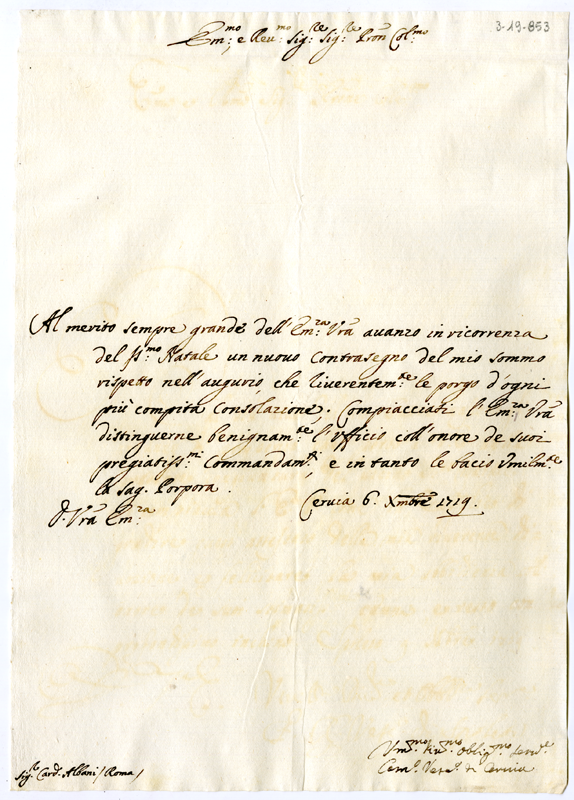 3-19-853
Em:mo, e Reu:mo Sig:re Sig:re Pron Col:mo
Al merito sempre grande dell'Em:za Vrã auanzo in ricorrenza
del ss:mo Natale un nuouo Contrasegno del mio sommo
rispetto nell'augurio, che riuerentem:te le porgo d'ogni
più compita Consolazione. Compiacciasi l'Em:za Vrã
distinguerne benignam:te l'Vfficio coll'onore de suoi
pregiatiss:mi Commandam:ti, e in tanto le bacio Vmilm:te
la sag. Porpora. Ceruia 6. Xmbre 1719.
d. Vrã Em:za
Vm:mo Obblig:mo Seru:e
Vesc:o di Ceruia
Sig:r Card. Albani / Roma /